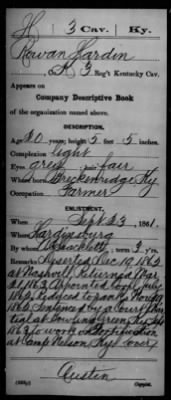 H 3 Cav. Ky.
Rowan Hardin
, Co. K, 3 Reg't Kentucky Cav.
Appears on
Company Descriptive Book
of the organization named above.
DESCRIPTION.
Age 20 years; height 5 feet 5 inches.
Complexion light
Eyes grey; hair fair
Where born Breckenridge, Ky
Occupation Farmer
ENLISTMENT.
When Sept 23, 1861.
Where Hardinsburg
By; term 3 y'rs.
Remarks Deserted Dec 19, 1862
at Nashvill. Returned Mar
21 1863. Apointed July
1862, Reduced to ranks Nov
1862, Sentenced by a Court Mar
tial at Bowling Green, Ky
1863 to work on fortification
at Camp Nelson, Ky
Austin
Copyist.